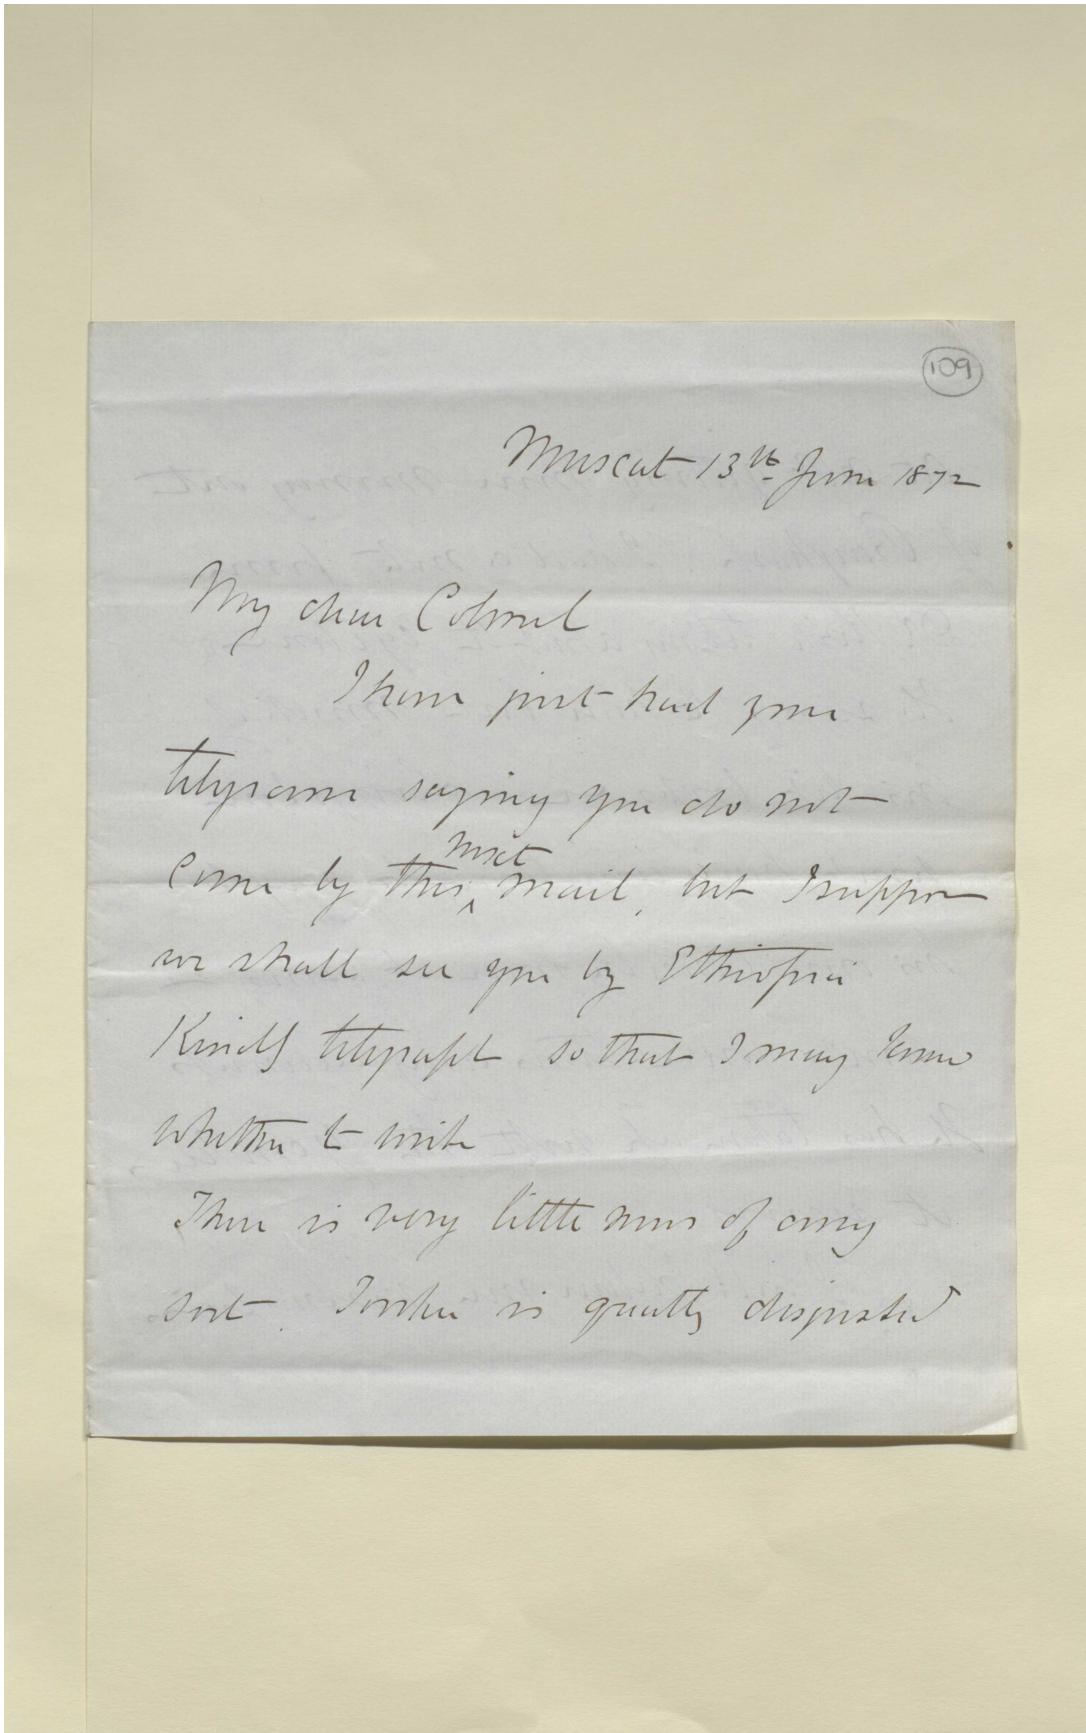 109
Muscat 13th June 1872
My dear Colonel
I have just had your
telegram saying you do not
next
come by this mail, but I suppose
we shall see you by Ethiopia
Kindly telegraph so that I may know
whether to write
There is very little news of any
sort. is greatly disgusted